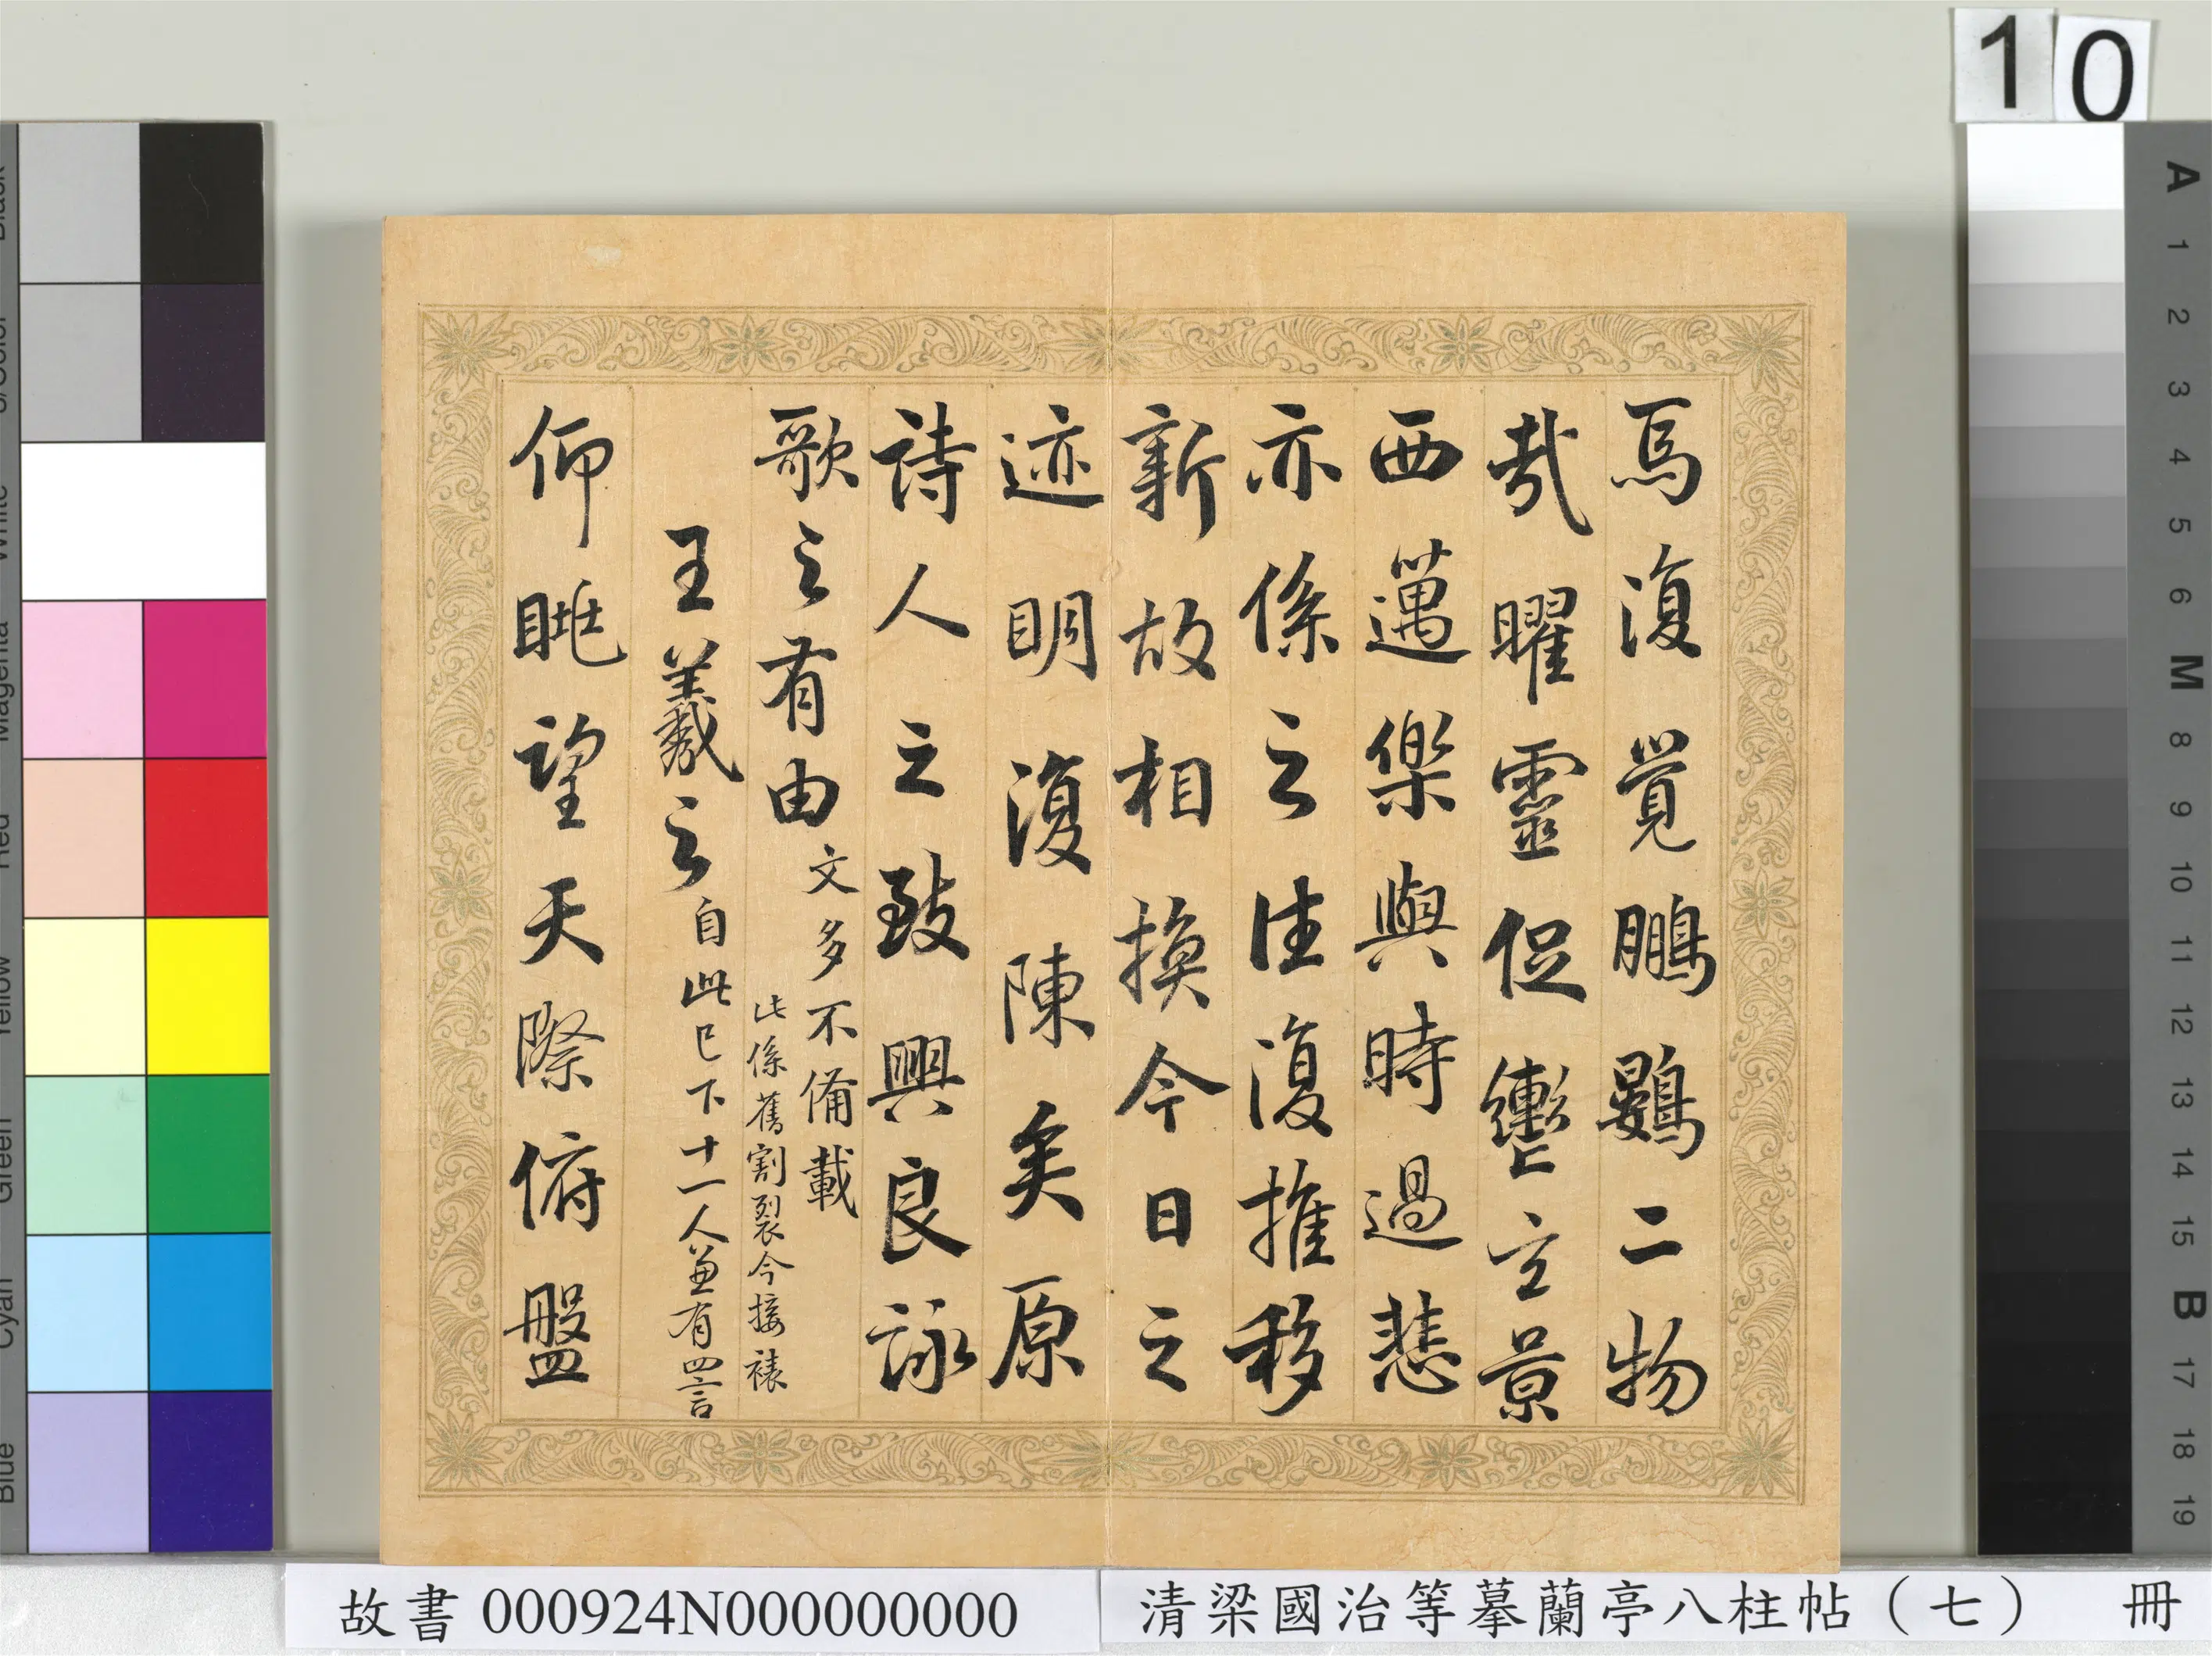 焉復覺鵬鷃二物
哉曜靈促轡玄景
西邁樂與時過悲
亦係之往復推移
新故相換今日之
迹明復陳矣原
詩人之致興良詠
歌之有由文多不備載
此係舊割裂今接裱
王羲之自此已下十一人兼有四言
仰眺望天際俯盤
10
故書 000924N000000000
清梁國治等摹蘭亭八柱帖（七） 冊
Black
3/Color
White
Magenta
Red
Yellow
Green
Cyan
Blue
A
1
2
3
4
5
6
M
8
9
10
11
12
13
14
15
B
17
18
19